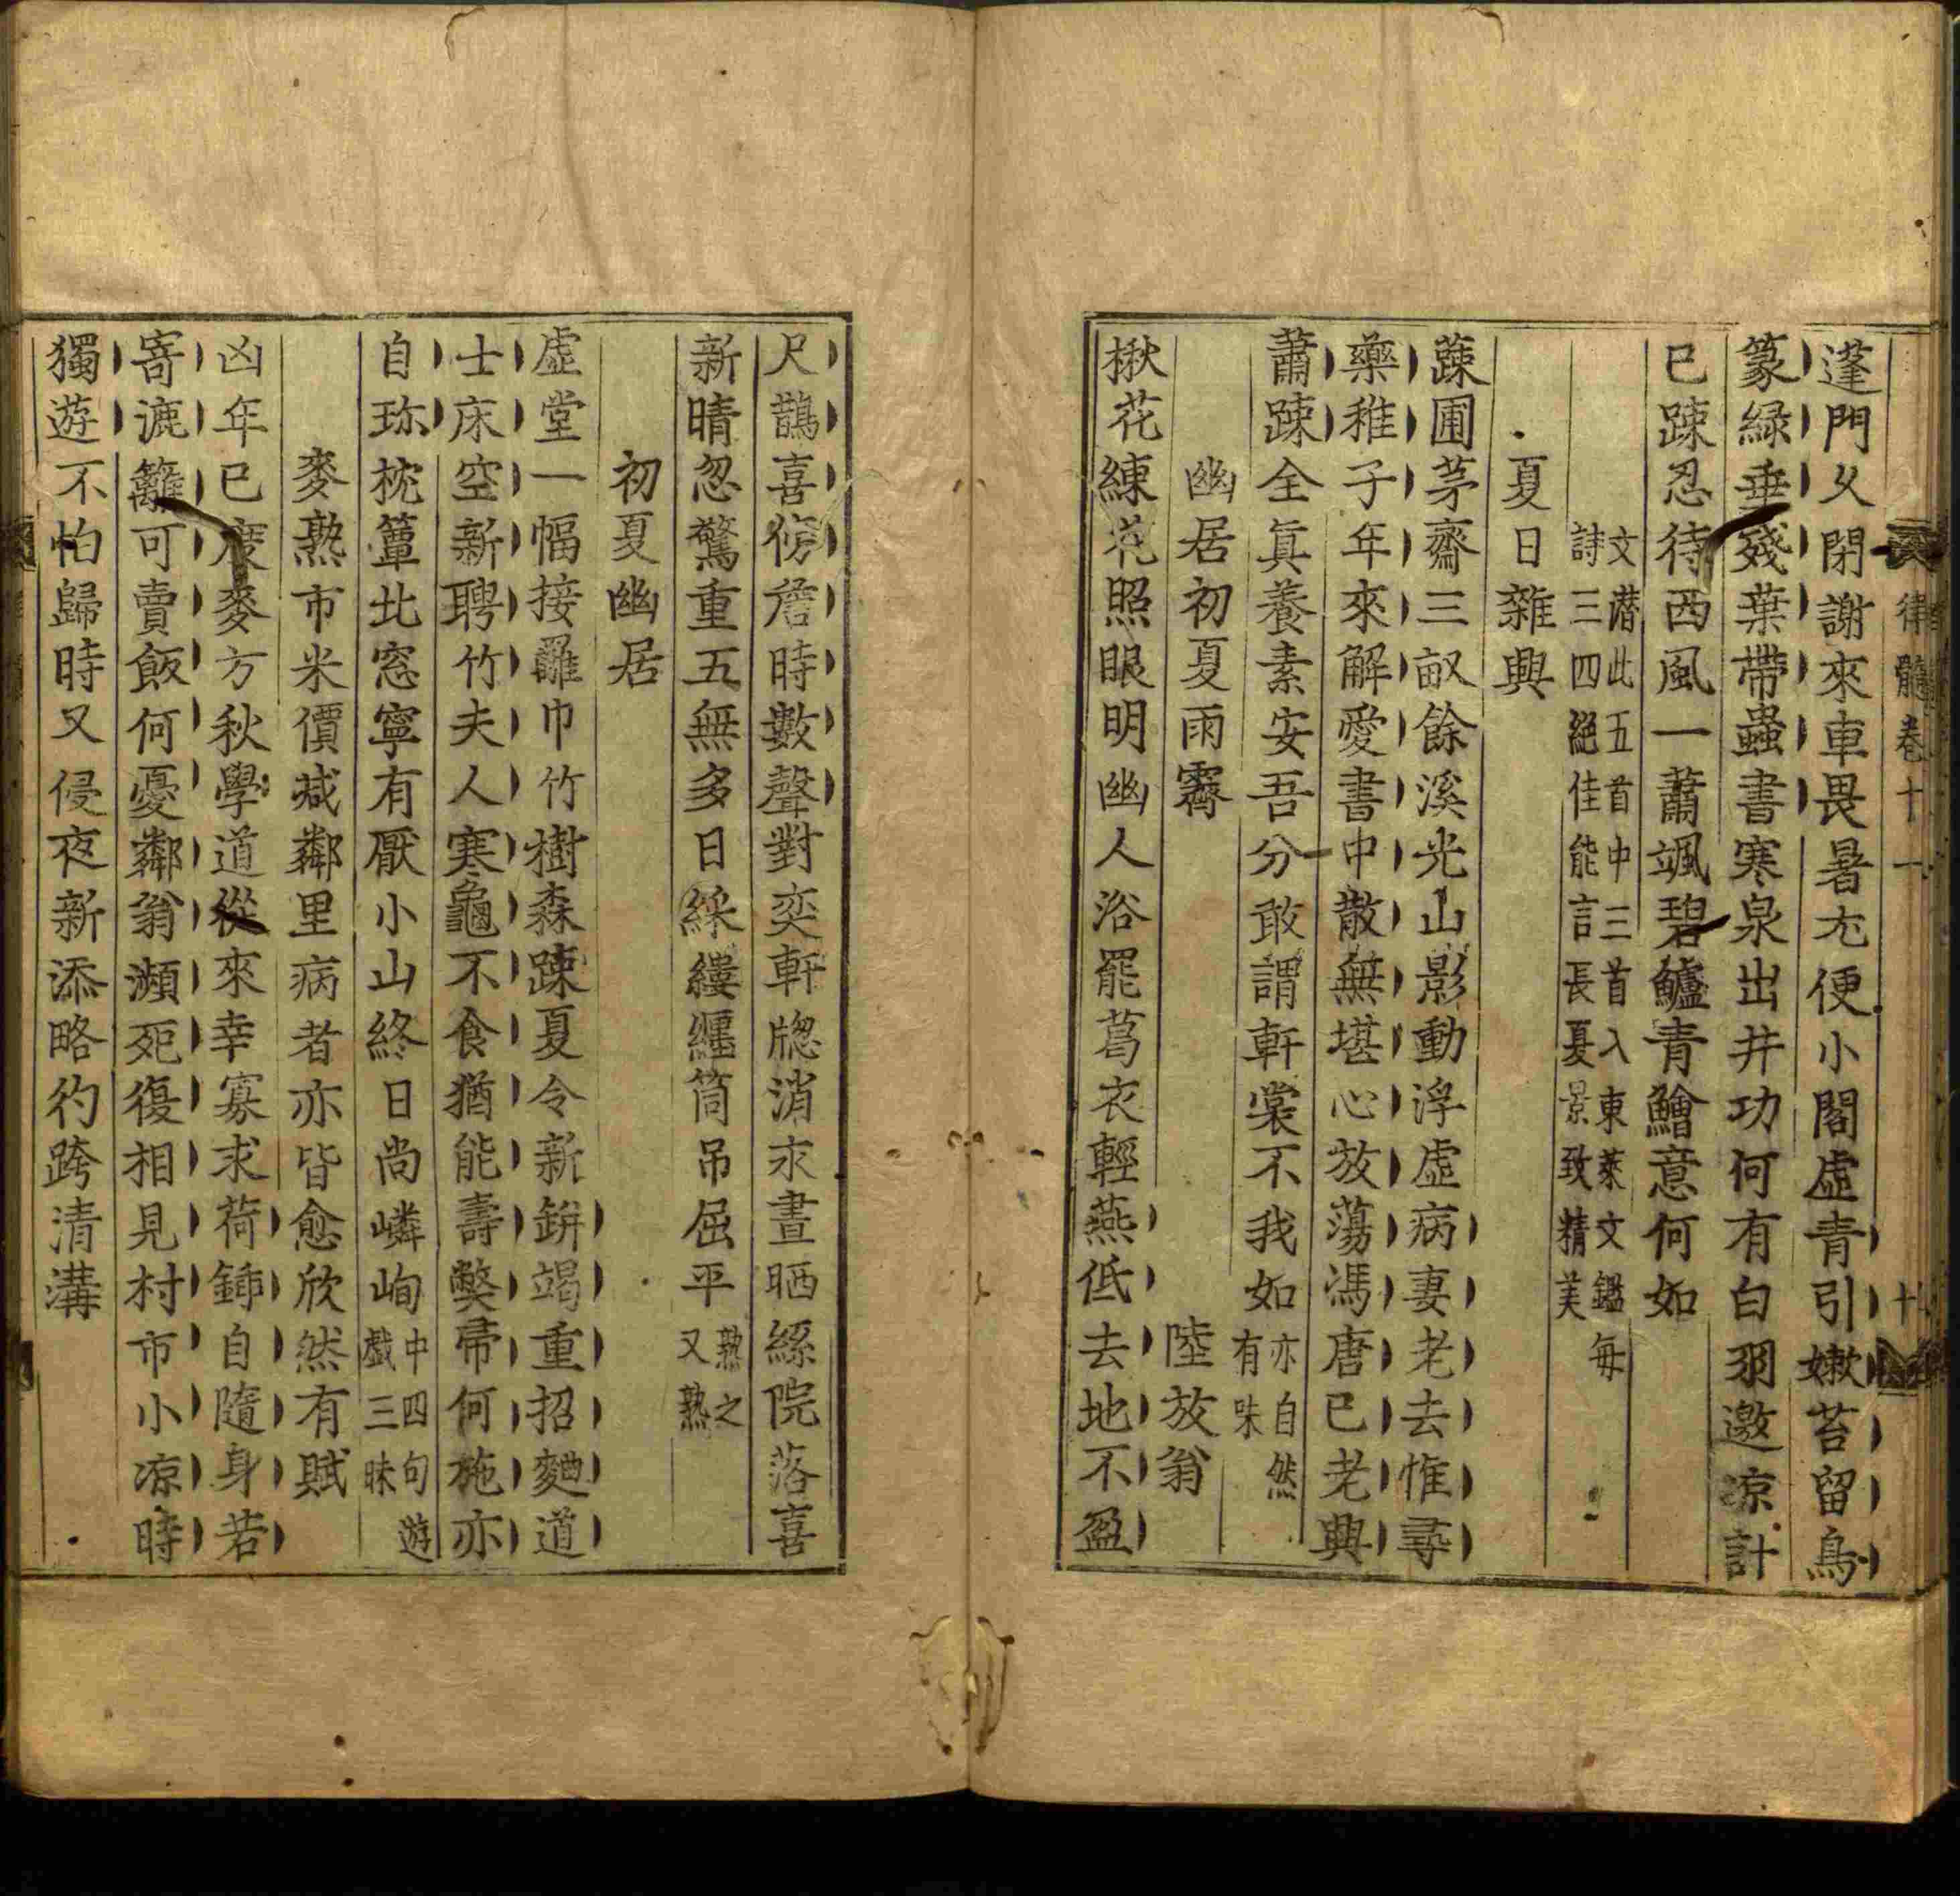 律髓卷十一 十
蓬門乆閉謝來車畏暑尢便小閣虛青引嫰苔留鳥
篆緑垂殘葉帶蟲書寒泉出井功何有白羽邀凉計
已踈忍待西風一蕭颯碧鱸青鱠意何如
文潜此五首中三首入東萊文鑑每
詩三四絕佳能言長夏景致精美
夏日雜興
蔬圃茅齋三畝餘溪光山影動浮虛病妻老去惟尋
藥稚子年來解愛書中散無堪心放蕩馮唐已老興
蕭踈全眞養素安吾分敢謂軒裳不我如亦自然有味
幽居初夏雨霽 陸放翁
楸花練花照眼明幽人浴罷葛衣輕燕低去地不盈
尺鵲喜傍簷時數聲對奕軒牎消永晝晒絲院落喜
新晴忽驚重五無多日綵縷纒筒吊屈平熟之又熟
初夏幽居
虛堂一幅接䍦巾竹樹森踈夏令新缾竭重招麴道
士床空新聘竹夫人寒龜不食猶能壽獘帚何施亦
自珎枕簟北窓寧有厭小山終日尚嶙峋中四句遊戲三昧
麥熟市米價减鄰里病者亦皆愈欣然有賦
凶年已度麥方秋學道從來幸寡求荷鍤自隨身若
寄漉籬可賣飯何憂鄰翁瀕死復相見村市小凉時
獨遊不怕歸時又侵夜新添略彴跨清溝